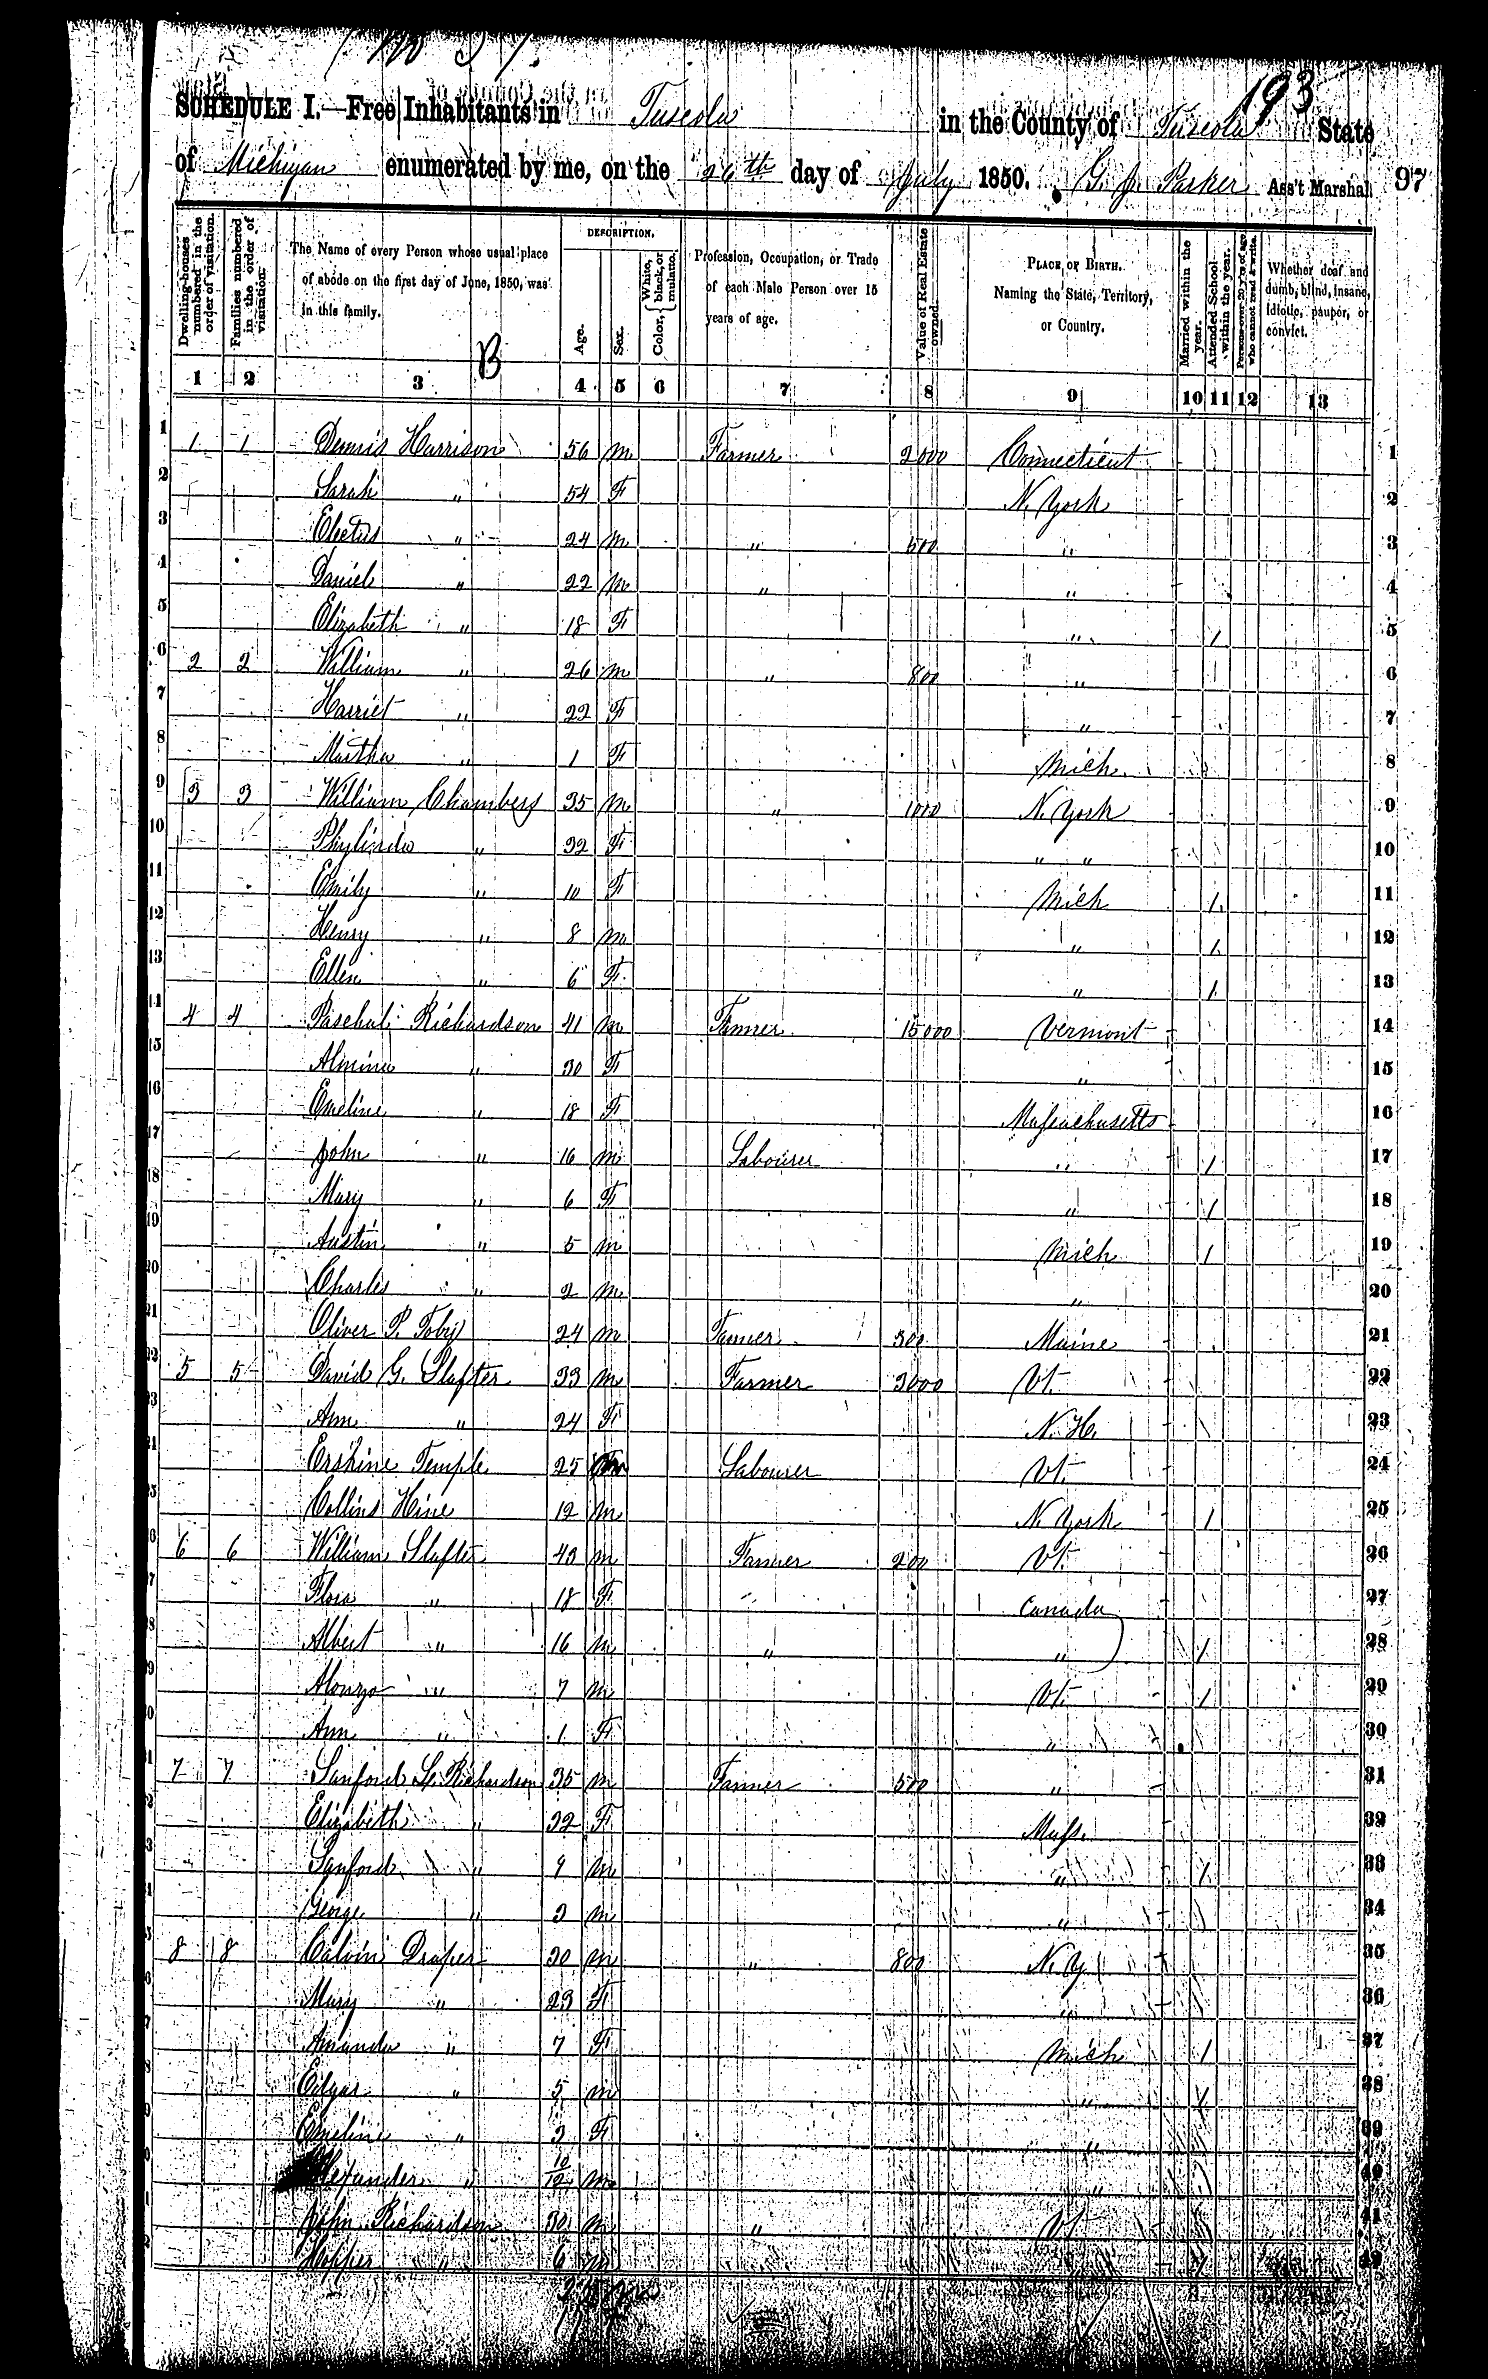 193
SCHEDULE I.—Free Inhabitants in Tuscola in the County of Tuscola State
of Michigan enumerated by me, on the 26th day of July 1850. G. J. Parker Ass't Marshal. 97
Dwelling-houses numbered in the order of visitation.
Families numbered in the order of visitation.
The Name of every Person whose usual place of abode on the first day of June, 1850, was in this family.
DESCRIPTION.
Age.
Sex.
Color, White, black, or mulatto.
Profession, Occupation, or Trade of each Male Person over 15 years of age.
Value of Real Estate owned.
PLACE OF BIRTH. Naming the State, Territory, or Country.
Married within the year.
Attended School within the year.
Persons over 20 y'rs of age who cannot read & write.
Whether deaf and dumb, blind, insane, idiotic, pauper, or convict.
B
1 2 3 4 5 6 7 8 9 10 11 12 13
1 1 1 Dennis Harrison 56 m Farmer 2000 Connecticut 1
2 Sarah " 54 F N. York 2
3 Electus " 24 m " 500 " 3
4 Daniel " 22 m " " 4
5 Elizabeth " 18 F " 1 5
6 2 2 William " 26 m " 800 " 6
7 Harriet " 22 F " 7
8 Martha " 1 F Mich. 8
9 3 3 William Chambers 35 m " 1000 N. York 9
10 Phylinda " 32 F " " 10
11 Emily " 10 F Mich 1 11
12 Henry " 8 m " 1 12
13 Ellen " 6 F " 1 13
14 4 4 Paschal Richardson 41 m Farmer 15000 Vermont 14
15 Almina " 30 F " 15
16 Emeline " 18 F Massachusetts 16
17 John " 16 m Labourer " 1 17
18 Mary " 6 F " 1 18
19 Austin " 5 m Mich 1 19
20 Charles " 2 m " 20
21 Oliver P. Toby 24 m Farmer 300 Maine 21
22 5 5 David G. Slafter 33 m Farmer 3000 Vt. 22
23 Ann " 24 F N. H. 23
24 Erskine Temple 25 m Labourer Vt. 24
25 Collins Hine 12 m N. York 1 25
26 6 6 William Slafter 43 m Farmer 200 Vt. 26
27 Flora " 18 F Canada 27
28 Albert " 16 m " " 1 28
29 Alonzo " 7 m Vt. 1 29
30 Ann " 1 F " 30
31 7 7 Sanford Richardson 35 m Farmer 500 " 31
32 Elizabeth " 32 F Mass. 32
33 Sanford " 9 m " 1 33
34 George " 3 m " 34
35 8 8 Calvin Draper 30 m " 800 N. Y. 35
36 Mary " 23 F " 36
37 Amanda " 7 F Mich 1 37
38 Edgar " 5 m " 1 38
39 Emeline " 3 F " 39
40 Alexander " 10/12 m " 40
41 John Richardson 30 m " Vt 41
42 Hopper " 6 m " 1 42